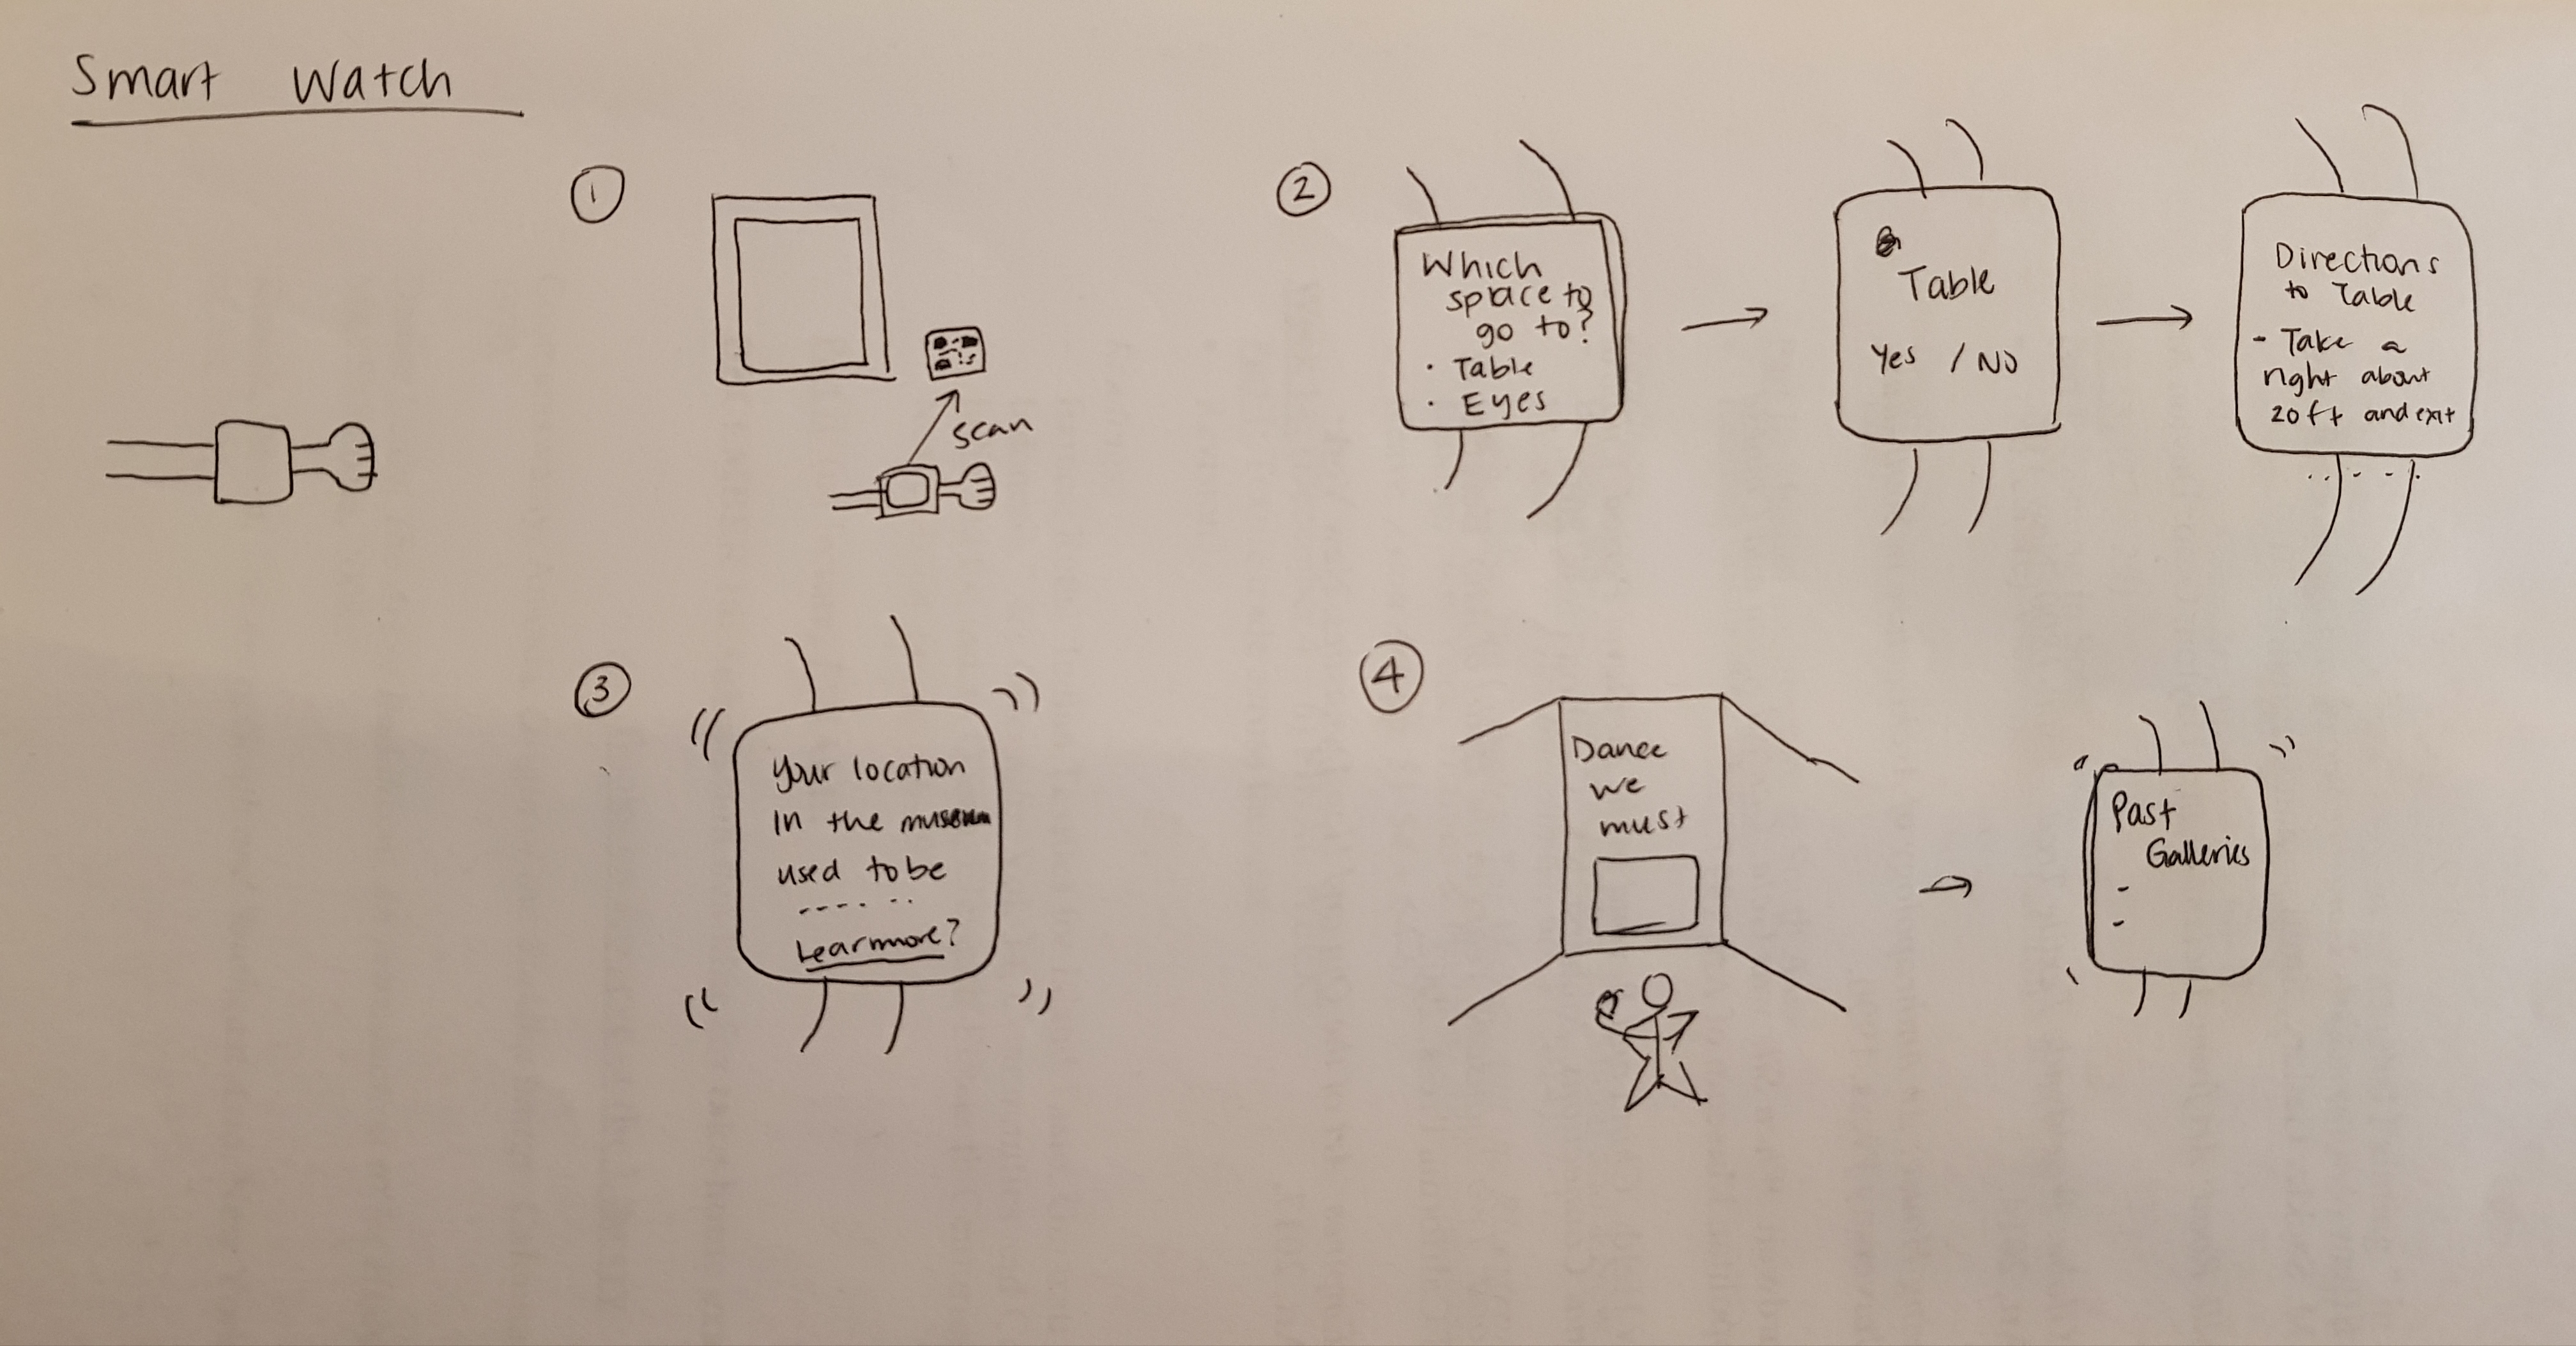 Smart Watch
1
scan
2
Which
space to
go to?
• Table
• Eyes
Table
Yes / NO
Directions
to Table
- Take a
right about
20ft and exit
3
Your location
in the museum
used to be
Learn more?
4
Dance
we
must
Past
Galleries
-
-